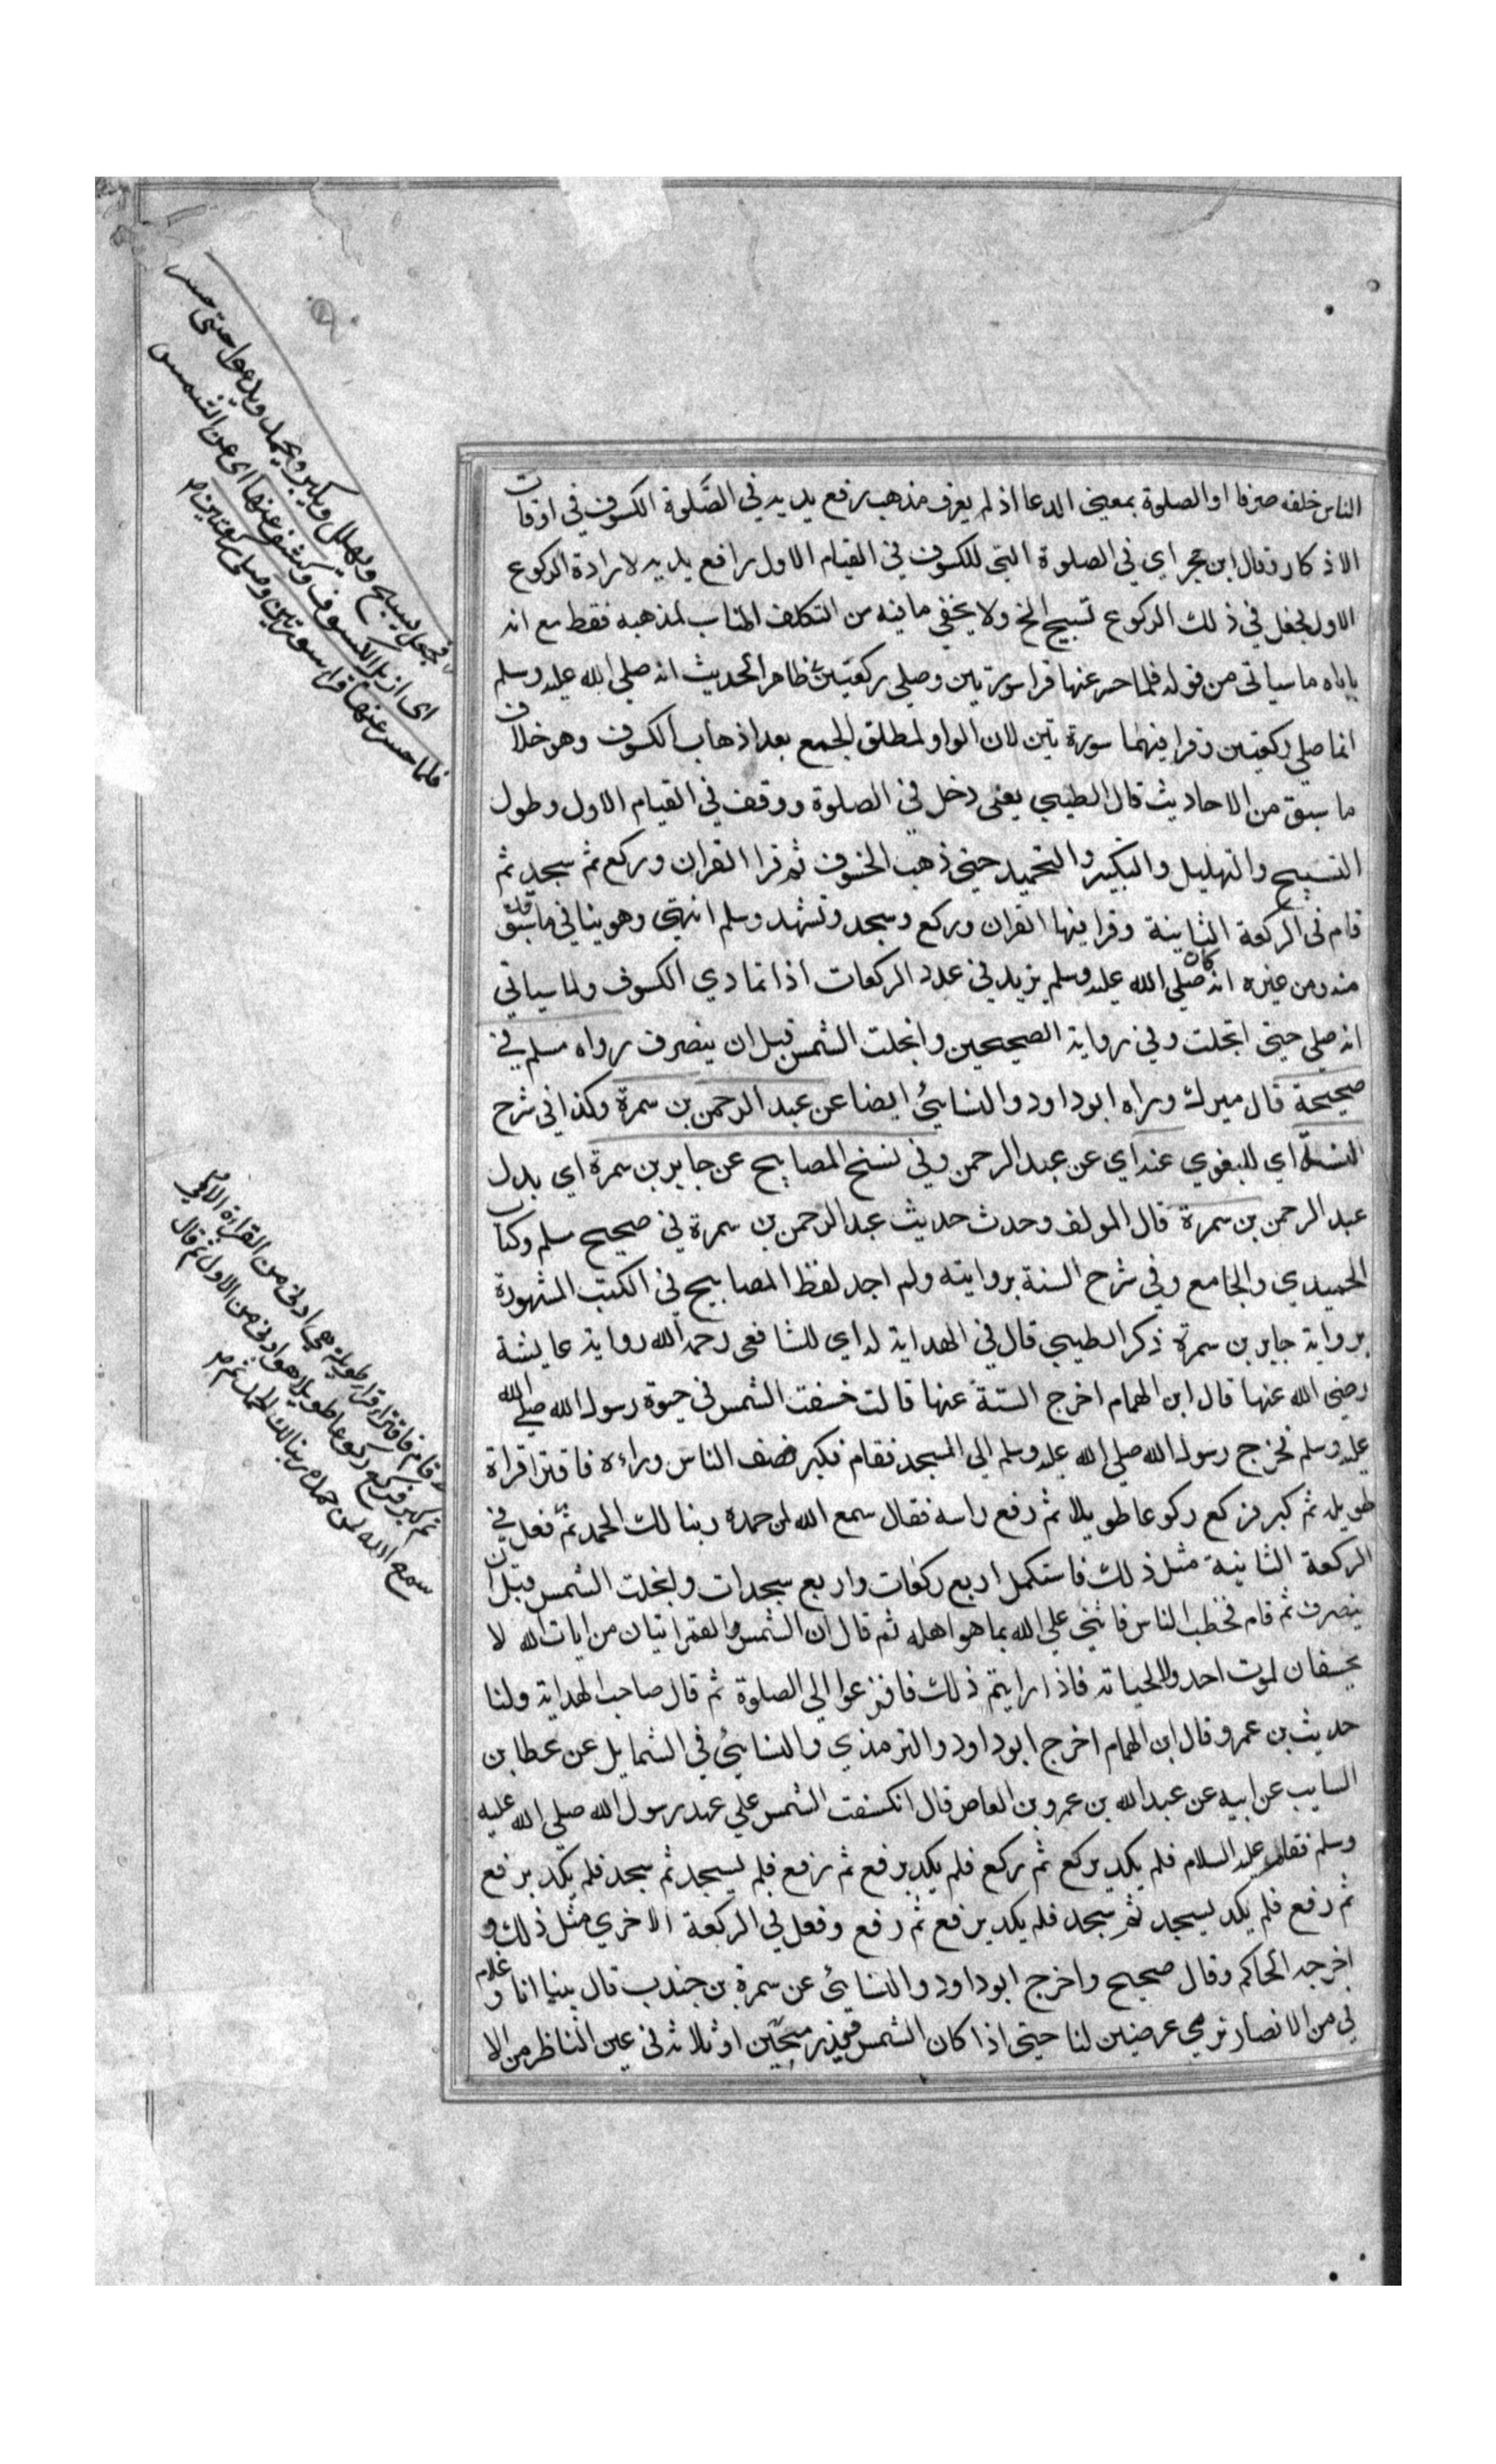 الناس خلفه صفوفا او الصلوة بمعنى الدعا اذ لم يعرف مذهب رفع يديه في الصَّلوة الكسوف في اوقات
الاذكار وقال ابن حجر اي في الصلوة التي للكسوف في القيام الاول رافع يديه لارادة الركوع
الاول فجعل في ذلك الركوع تسبيح الخ ولا يخفي ما فيه من التكلف المناسب لمذهبه فقط مع انه
ياباه ما سياتي من قوله فلما حسر عنها قرا سورتين وصلي ركعتين ظاهر الحديث انه صلي الله عليه وسلم
انما صلي ركعتين وقرا فيهما سورتين لان الواو لمطلق الجمع بعد اذهاب الكسوف وهو خلاف
ما سبق من الاحاديث قال الطيبي يعني دخل في الصلوة ووقف في القيام الاول وطول
التسبيح والتهليل والتكبير والتحميد حتي ذهب الخسوف ثم قرا القران وركع ثم سجد ثم
قام في الركعة الثانية وقرا فيها القران وركع وسجد وتشهد وسلم انتهي وهو ينافي ما سبق
منه ومن غيره انه كان صلي الله عليه وسلم يزيد في عدد الركعات اذا تمادي الكسوف ولما سياتي
انه صلي حتي انجلت وفي رواية الصحيحين وانجلت الشمس قبل ان ينصرف رواه مسلم في
صحيحه قال ميرك وراه ابوداود والنسائي ايضا عن عبد الرحمن بن سمرة وكذا في شرح
السنة اي للبغوي عنه اي عن عبد الرحمن وفي نسخ المصابيح عن جابر بن سمرة اي بدل
عبد الرحمن بن سمرة قال المولف وحدث حديث عبد الرحمن بن سمرة في صحيح مسلم وكتاب
الحميدي والجامع وفي شرح السنة بروايته ولم اجد لفظ المصابيح في الكتب المشهورة
برواية جابر بن سمرة ذكر الطيبي قال في الهداية له اي للشافعي رحمه الله رواية عايشة
رضي الله عنها قال ابن الهمام اخرج الستة عنها قالت خسفت الشمس في حيوة رسول الله صلي الله
عليه وسلم فخرج رسول الله صلي الله عليه وسلم الي المسجد فقام فكبر فصف الناس وراءه فاقترا قراة
طويله ثم كبر فركع ركوعا طويلا ثم رفع راسه فقال سمع الله لمن حمده ربنا لك الحمد ثم فعل في
الركعة الثانية مثل ذلك فاستكمل اربع ركعات واربع سجدات وانجلت الشمس قبل ان
ينصرف ثم قام فخطب الناس فاثني علي الله بما هو اهله ثم قال ان الشمس والقمر ايتان من ايات الله لا
يخسفان لموت احد ولا لحياته فاذا رايتم ذلك فافزعوا الي الصلوة ثم قال صاحب الهداية ولنا
حديث بن عمرو قال ابن الهمام اخرج ابوداود والترمذي والنسائي في الشمايل عن عطا بن
السايب عن ابيه عن عبد الله بن عمرو بن العاص قال انكسفت الشمس علي عهد رسول الله صلي الله عليه
وسلم فقام عليه السلام فلم يكد يركع ثم ركع فلم يكد يرفع ثم رفع فلم يسجد ثم سجد فلم يكد يرفع
ثم رفع فلم يكد يسجد ثم سجد فلم يكد يرفع ثم رفع وفعل في الركعة الاخري مثل ذلك و
اخرجه الحاكم وقال صحيح واخرج ابوداود والنسائي عن سمرة بن جندب قال بينا انا وغلام
لي من الانصار نرمي عرضين لنا حتي اذا كان الشمس قيد رمحين او ثلاثة في عين الناظر من الا
فجعل يسبح ويهلل ويكبر ويحمد ويدعوا حتي حسر
اي ازيل الكسوف وكشف عنها اي عن الشمس
فلما حسر عنها قرا سورتين وصلي ركعتين
قام فاقترا قراة طويلة هي ادني من القراءة الاولي
ثم كبر فركع ركوعا طويلا هو ادني من الاول ثم قال
سمع الله لمن حمده ربنا لك الحمد ثم